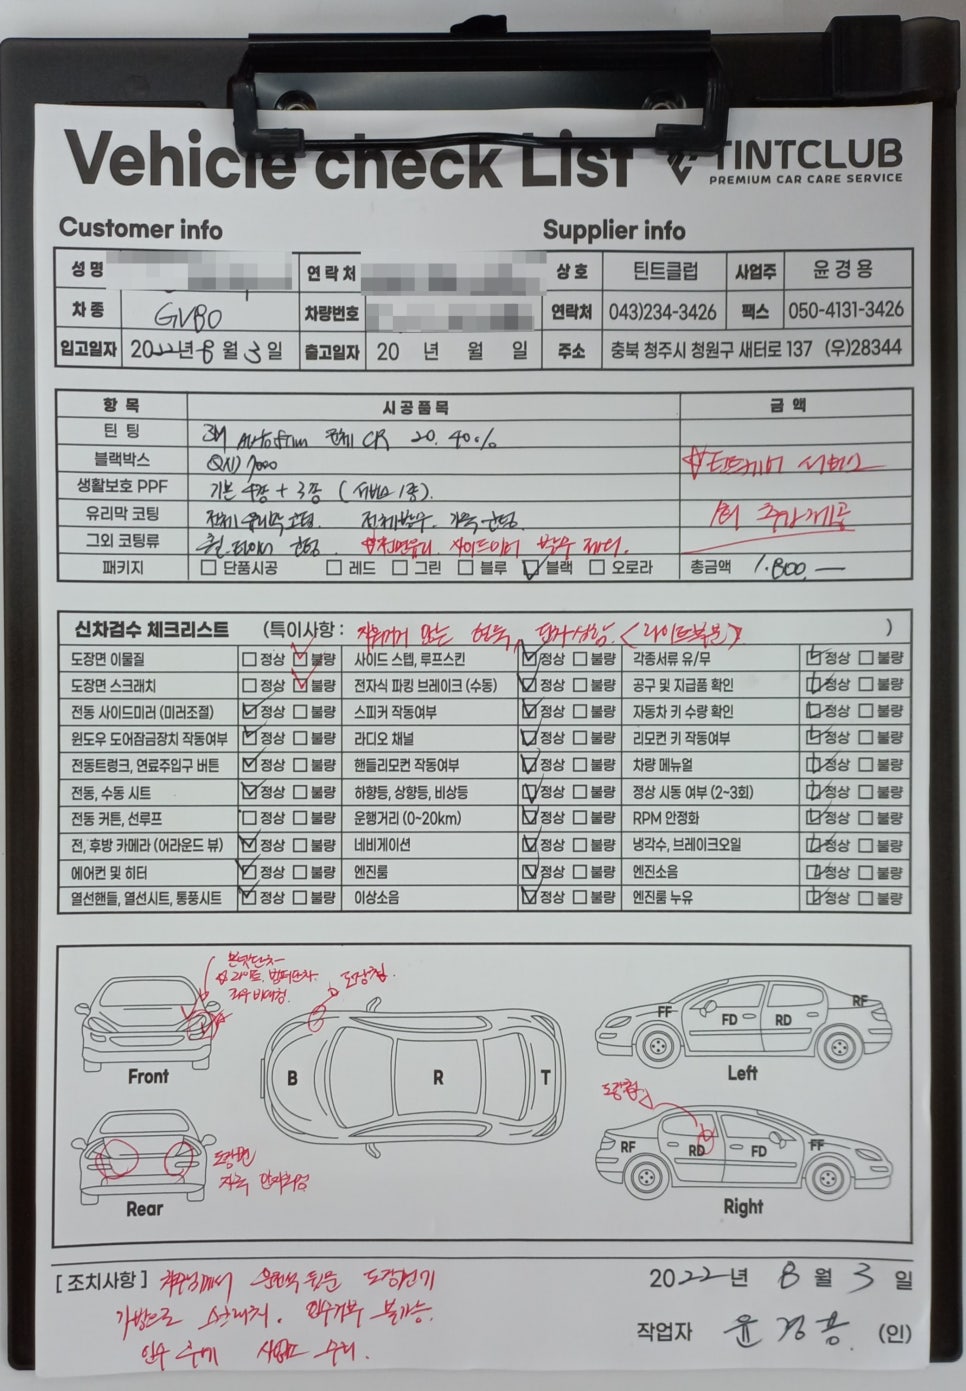 Vehicle check List TINTCLUB
PREMIUM CAR CARE SERVICE
Customer info Supplier info
성 명 연 락 처 상 호 틴트클럽 사업주 윤 경 용
차 종 GV80 차량번호 연락처 043)234-3426 팩스 050-4131-3426
입고일자 2022년 8월 3일 출고일자 20 년 월 일 주소 충북 청주시 청원구 새터로 137 (우)28344
항 목 시 공 품 목 금 액
틴 팅 3M 전체 CR 20. 40%
블랙박스 QXD 7000
생활보호 PPF 기본 4종 + 3종 (서비스 1종).
유리막 코팅 전체 유리막 코팅. 전체발수. 가죽 코팅.
그외 코팅류 휠. 타이어 코팅. 전면유리. 사이드미러 발수
1회 추가제공
패키지 단품시공 레드 그린 블루 블랙 오로라 총금액 1.800.—
신차검수 체크리스트 (특이사항: 지워지지 않는 얼룩, 단차 상황. (라이트부분) )
도장면 이물질 정상 불량 사이드 스텝, 루프스킨 정상 불량 각종서류 유/무 정상 불량
도장면 스크래치 정상 불량 전자식 파킹 브레이크 (수동) 정상 불량 공구 및 지급품 확인 정상 불량
전동 사이드미러 (미러조절) 정상 불량 스피커 작동여부 정상 불량 자동차 키 수량 확인 정상 불량
윈도우 도어잠금장치 작동여부 정상 불량 라디오 채널 정상 불량 리모컨 키 작동여부 정상 불량
전동트렁크, 연료주입구 버튼 정상 불량 핸들리모컨 작동여부 정상 불량 차량 메뉴얼 정상 불량
전동, 수동 시트 정상 불량 하향등, 상향등, 비상등 정상 불량 정상 시동 여부 (2~3회) 정상 불량
전동 커튼, 선루프 정상 불량 운행거리 (0~20km) 정상 불량 RPM 안정화 정상 불량
전, 후방 카메라 (어라운드 뷰) 정상 불량 네비게이션 정상 불량 냉각수, 브레이크오일 정상 불량
에어컨 및 히터 정상 불량 엔진룸 정상 불량 엔진소음 정상 불량
열선핸들, 열선시트, 통풍시트 정상 불량 이상소음 정상 불량 엔진룸 누유 정상 불량
본넷단차
라이트, 범퍼단차.
좌우 비대칭.
도장찍힘.
FF FD RD RF
B R T
Front Left
도장찍힘
RF RD FD FF
도장면
자국
Rear Right
[ 조치사항 ] 차주님께서 운전석 뒷문 도장전기
가방으로 스크래치. 인수거부 불가능.
인수 후에 사업소 수리.
2022년 8월 3일
작업자 윤경용 (인)